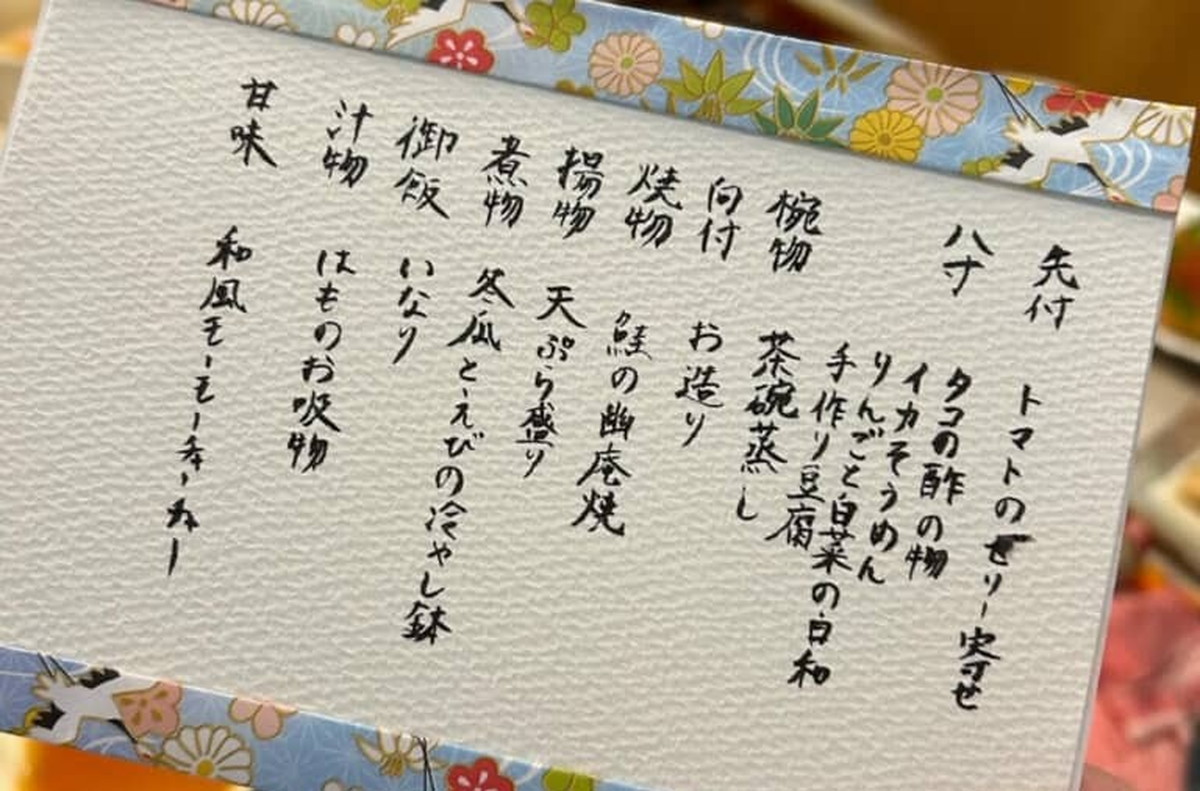 先付 トマトのゼリー寄せ
八寸 タコの酢の物
イカそうめん
りんごと白菜の白和
手作り豆腐
椀物 茶碗蒸し
向付 お造り
焼物 鮭の幽庵焼
揚物 天ぷら盛り
煮物 冬瓜とえびの冷やし鉢
御飯 いなり
汁物 はものお吸物
甘味 和風モーモーチャーチャー